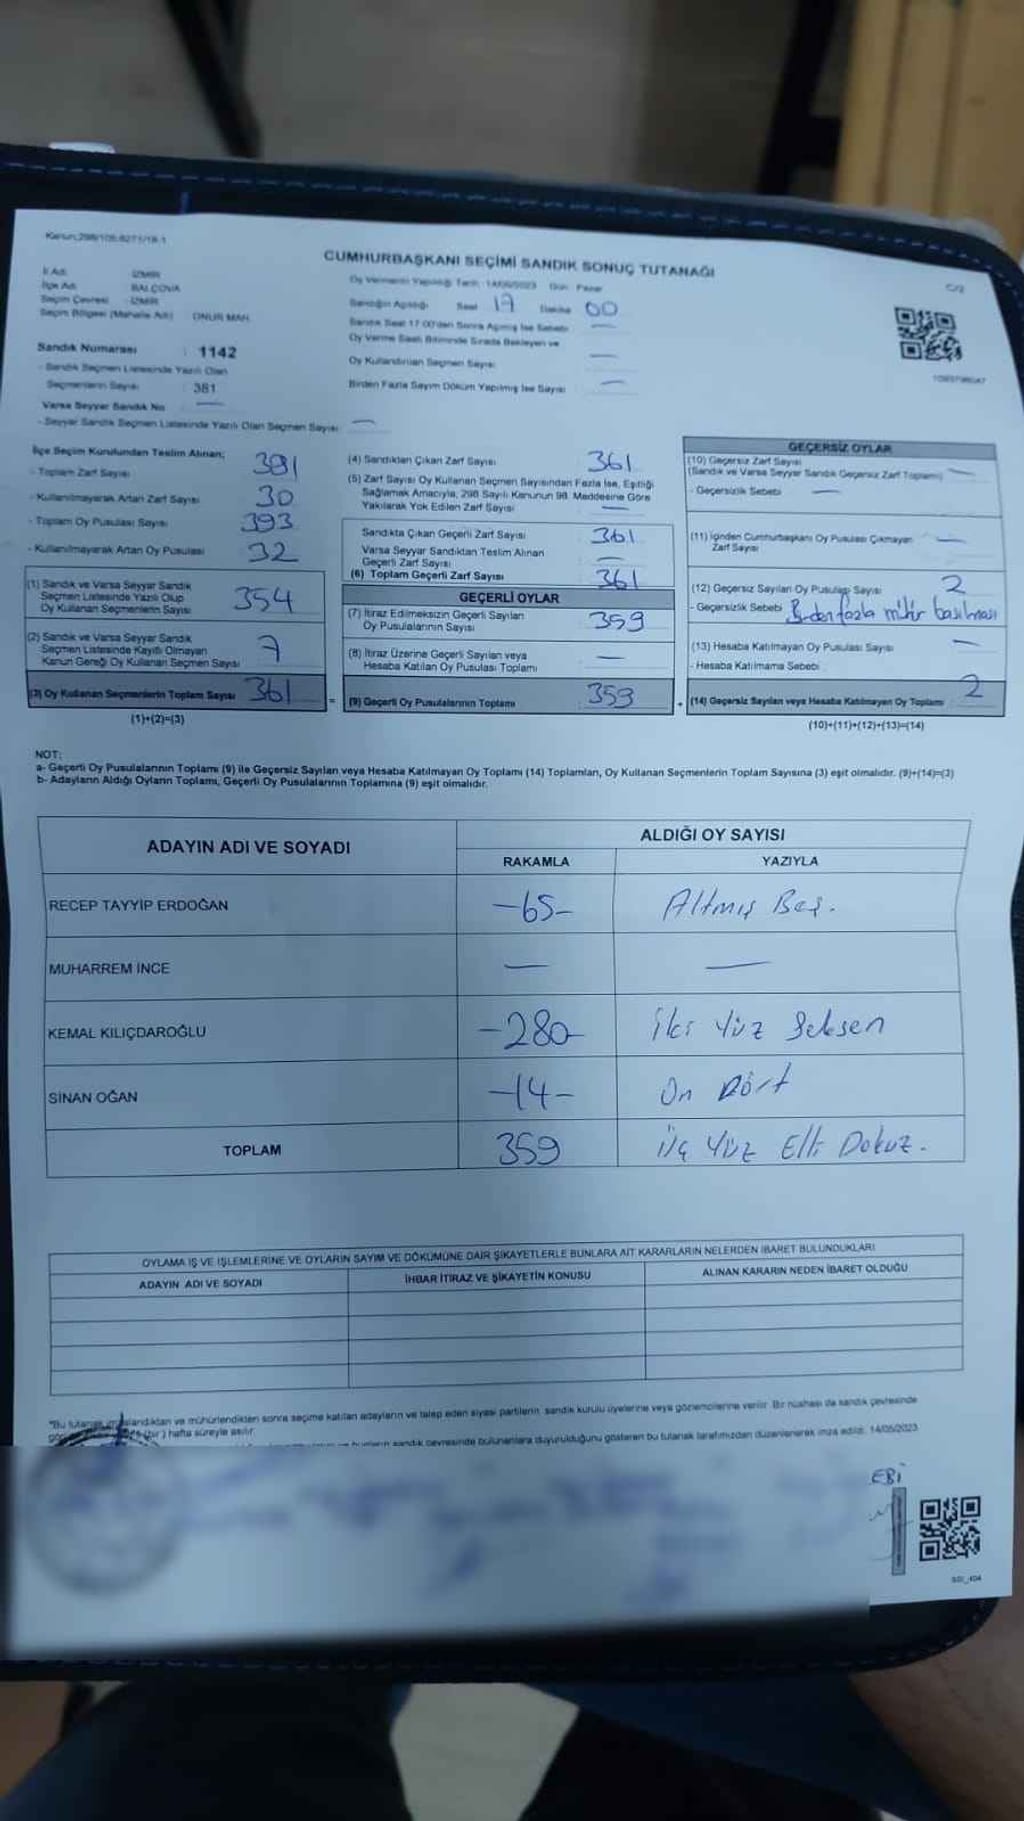 Kanun:298/105,6271/18-1
CUMHURBAŞKANI SEÇİMİ SANDIK SONUÇ TUTANAĞI
C/2
İl Adı İZMİR
İlçe Adı BALÇOVA
Seçim Çevresi İZMİR
Seçim Bölgesi (Mahalle Adı) ONUR MAH.
Sandık Numarası : 1142
- Sandık Seçmen Listesinde Yazılı Olan
Seçmenlerin Sayısı : 381
Varsa Seyyar Sandık No —
- Seyyar Sandık Seçmen Listesinde Yazılı Olan Seçmen Sayısı —
Oy Vermenin Yapıldığı Tarih: 14/05/2023 Gün: Pazar
Sandığın Açıldığı Saat 17 Dakika 00
Sandık Saat 17:00'den Sonra Açılmış İse Sebebi —
Oy Verme Saati Bitiminde Sırada Bekleyen ve
Oy Kullandırılan Seçmen Sayısı —
Birden Fazla Sayım Döküm Yapılmış İse Sayısı —
İlçe Seçim Kurulundan Teslim Alınan;
- Toplam Zarf Sayısı 391
- Kullanılmayarak Artan Zarf Sayısı 30
- Toplam Oy Pusulası Sayısı 393
- Kullanılmayarak Artan Oy Pusulası 32
(1) Sandık ve Varsa Seyyar Sandık
Seçmen Listesinde Yazılı Olup
Oy Kullanan Seçmenlerin Sayısı 354
(2) Sandık ve Varsa Seyyar Sandık
Seçmen Listesinde Kayıtlı Olmayan
Kanun Gereği Oy Kullanan Seçmen Sayısı 7
(3) Oy Kullanan Seçmenlerin Toplam Sayısı 361
(1)+(2)=(3)
(4) Sandıktan Çıkan Zarf Sayısı 361
(5) Zarf Sayısı Oy Kullanan Seçmen Sayısından Fazla İse, Eşitliği
Sağlamak Amacıyla, 298 Sayılı Kanunun 98. Maddesine Göre
Yakılarak Yok Edilen Zarf Sayısı —
Sandıkta Çıkan Geçerli Zarf Sayısı 361
Varsa Seyyar Sandıktan Teslim Alınan
Geçerli Zarf Sayısı —
(6) Toplam Geçerli Zarf Sayısı 361
GEÇERLİ OYLAR
(7) İtiraz Edilmeksizin Geçerli Sayılan
Oy Pusulalarının Sayısı 359
(8) İtiraz Üzerine Geçerli Sayılan veya
Hesaba Katılan Oy Pusulası Toplamı —
= (9) Geçerli Oy Pusulalarının Toplamı 359
GEÇERSİZ OYLAR
(10) Geçersiz Zarf Sayısı
(Sandık ve Varsa Seyyar Sandık Geçersiz Zarf Toplamı) —
- Geçersizlik Sebebi —
(11) İçinden Cumhurbaşkanı Oy Pusulası Çıkmayan
Zarf Sayısı —
(12) Geçersiz Sayılan Oy Pusulası Sayısı 2
- Geçersizlik Sebebi Birden fazla mühür basılması
(13) Hesaba Katılmayan Oy Pusulası Sayısı —
- Hesaba Katılmama Sebebi
+ (14) Geçersiz Sayılan veya Hesaba Katılmayan Oy Toplamı 2
(10)+(11)+(12)+(13)=(14)
NOT:
a- Geçerli Oy Pusulalarının Toplamı (9) ile Geçersiz Sayılan veya Hesaba Katılmayan Oy Toplamı (14) Toplamları, Oy Kullanan Seçmenlerin Toplam Sayısına (3) eşit olmalıdır. (9)+(14)=(3)
b- Adayların Aldığı Oyların Toplamı, Geçerli Oy Pusulalarının Toplamına (9) eşit olmalıdır.
ADAYIN ADI VE SOYADI
ALDIĞI OY SAYISI
RAKAMLA YAZIYLA
RECEP TAYYİP ERDOĞAN -65- Altmış Beş.
MUHARREM İNCE — —
KEMAL KILIÇDAROĞLU -280- İki Yüz Seksen
SİNAN OĞAN -14- On Dört
TOPLAM 359 Üç Yüz Elli Dokuz.
OYLAMA İŞ VE İŞLEMLERİNE VE OYLARIN SAYIM VE DÖKÜMÜNE DAİR ŞİKAYETLERLE BUNLARA AİT KARARLARIN NELERDEN İBARET BULUNDUKLARI
ADAYIN ADI VE SOYADI İHBAR İTİRAZ VE ŞİKAYETİN KONUSU ALINAN KARARIN NEDEN İBARET OLDUĞU
"Bu tutanak imzalandıktan ve mühürlendikten sonra seçime katılan adayların ve talep eden siyasi partilerin sandık kurulu üyelerine veya gözlemcilerine verilir. Bir nüshası da sandık çevresinde
(bir) hafta süreyle asılır.
sandık çevresinde bulunanlara duyurulduğunu gösteren bu tutanak tarafımızdan düzenlenerek imza edildi. 14/05/2023